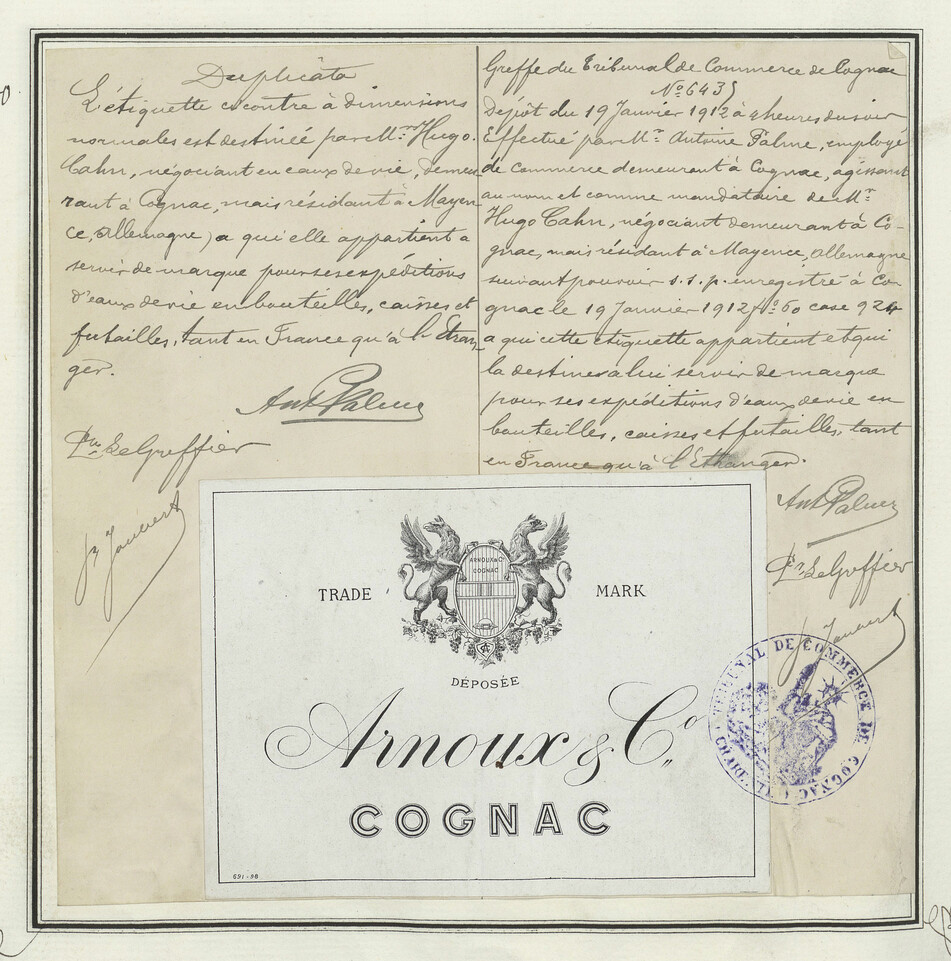 Duplicata
L'étiquette ci contre à dimensions
normales est destinée par Mr. Hugo
Cahn, négociant en eaux de vie, demeu-
rant à Cognac, mais résidant à Mayen-
ce, Allemagne) a qui elle appartient a
servir de marque pour ses expéditions
d'eaux de vie en bouteilles, caisses et
futailles, tant en France qu'à l'Etran-
ger.
Ant Palme
Pr. Le Greffier
Greffe du Tribunal de Commerce de Cognac
No. 6435
Dépôt du 19 Janvier 1912 à 4 heures du soir
Effectué par Mr. Antoine Palme, employé
de commerce demeurant à Cognac, agissant
au nom et comme mandataire de Mr.
Hugo Cahn, négociant demeurant à Co-
gnac, mais résidant à Mayence, Allemagne
suivant pouvoir s.s.p. enregistré à Co-
gnac le 19 Janvier 1912 fo. 60 case 924
a qui cette étiquette appartient et qui
la destine a lui servir de marque
pour ses expéditions d'eaux de vie en
bouteilles, caisses et futailles, tant
en France qu'à l'Ethanger.
Ant Palme
Pr. Le Greffier
ARNOUX & Co
COGNAC
TRADE MARK
DÉPOSÉE
Arnoux & Co.
COGNAC
691-98
TRIBUNAL DE COMMERCE DE COGNAC